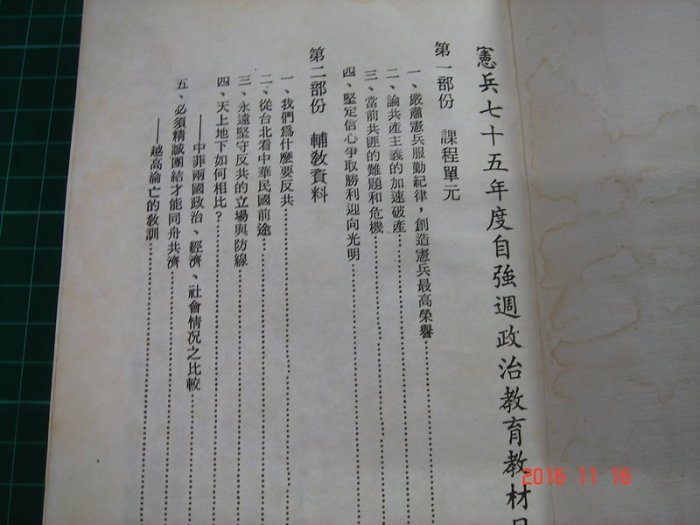 憲兵七十五年度自強週政治教育教材
第一部份 課程單元
一、嚴肅憲兵服勤紀律，創造憲兵最高榮譽
二、論共產主義的加速破產
三、當前共匪的難題和危機
四、堅定信心爭取勝利迎向光明
第二部份 輔教資料
一、我們爲什麼要反共
二、從台北看中華民國前途
三、永遠堅守反共的立場與防線
四、天上地下如何相比？
——中菲兩國政治、經濟、社會情況之比較
五、必須精誠團結才能同舟共濟
——越高淪亡的教訓
2016 11 16